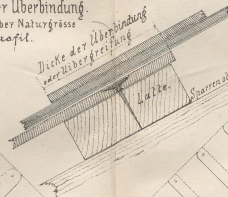 r Uberbindung.
ber Naturgrösse
rofil.
Dicke der Überbindung
oder Uibergreifung
Latte.
Sparrenob